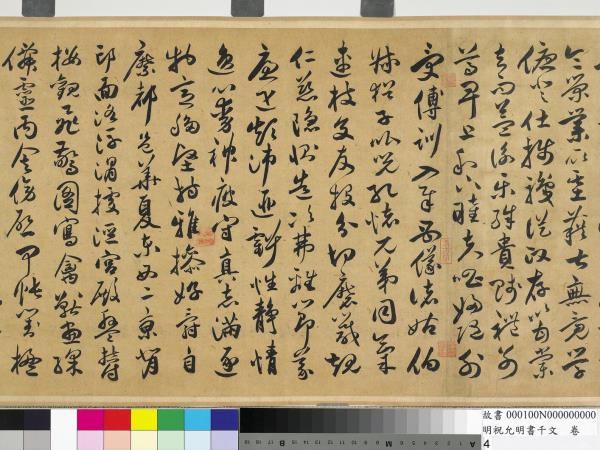 令榮業所基籍甚無竟學
優登仕攝職從政存以甘棠
去而益詠樂殊貴賤禮別
尊卑上和下睦夫唱婦隨外
受傅訓入奉母儀諸姑伯
叔猶子比兒孔懷兄弟同氣
連枝交友投分切磨箴規
仁慈隱惻造次弗離節義
廉退顛沛匪虧性靜情
逸心動神疲守真志滿逐
物意移堅持雅操好爵自
縻都邑華夏東西二京背
邙面洛浮渭據涇宮殿盤鬱
樓觀飛驚圖寫禽獸畫綵
僊靈丙舍傍啟甲帳對楹
故書 000100N000000000
明祝允明書千文 卷
4